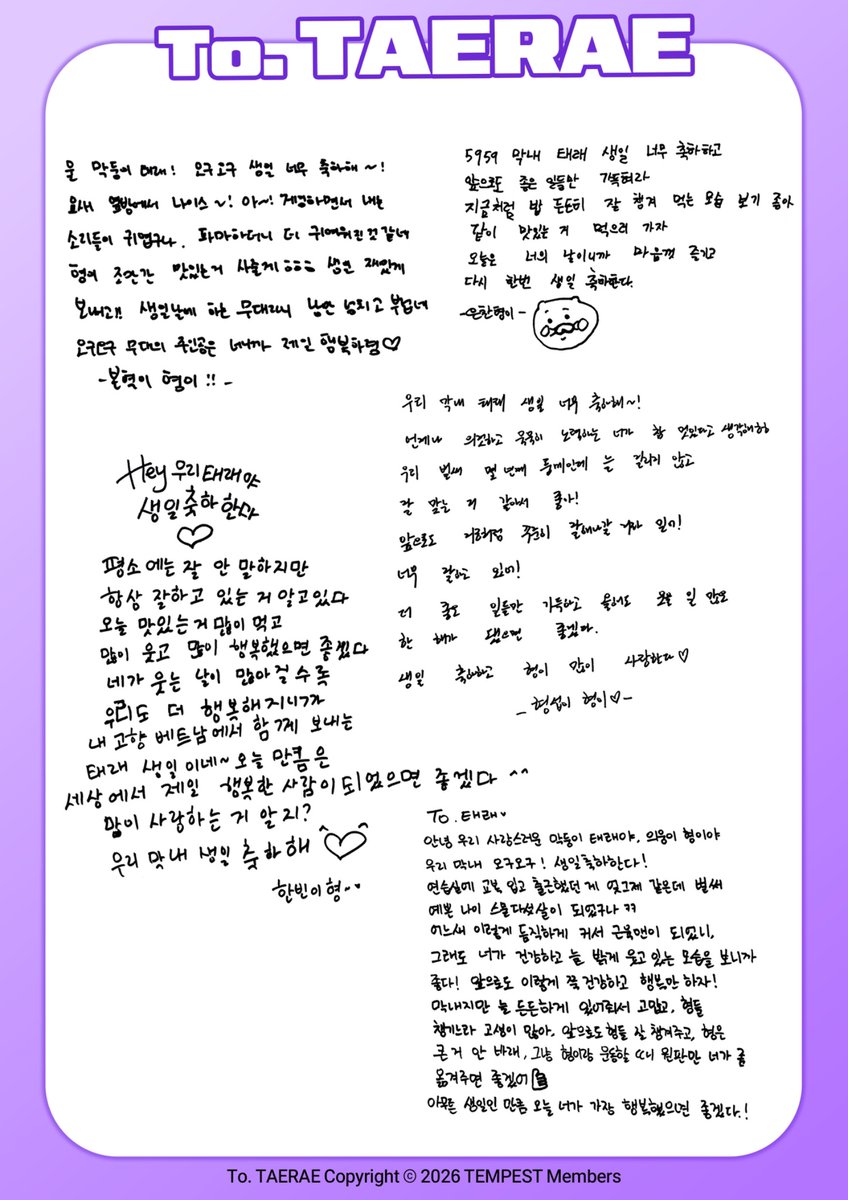 To. TAERAE
울 막둥이 태래! 오구오구 생일 너무 축하해~!
요새 옆방에서 나이스~! 아~! 게임하면서 내는
소리들이 귀엽구나. 파마하더니 더 귀여워진것 같네
형이 조만간 맛있는거 사줄게 생일 재밌게
보내고!! 생일날에 하는 무대라니 낭만 넘치고 부럽네
오구오구 무대의 주인공은 너니까 제일 행복하렴♡
-본혁이 형이!! -
5959 막내 태래 생일 너무 축하하고
앞으로도 좋은 일들만 가득혀라
지금처럼 밥 든든히 잘 챙겨 먹는 모습 보기 좋아
같이 맛있는 거 먹으러 가자
오늘은 너의 날이니까 마음껏 즐기고
다시 한번 생일 축하한다.
-은찬형이-
Hey 우리 태래야
생일 축하한다
♡
평소에는 잘 안 말하지만
항상 잘하고 있는 거 알고있다
오늘 맛있는 거 많이 먹고
많이 웃고 많이 행복했으면 좋겠다
네가 웃는 날이 많아질수록
우리도 더 행복해지니까
내 고향 베트남에서 함께 보내는
태래 생일이네~ 오늘 만큼은
세상에서 제일 행복한 사람이 되었으면 좋겠다 ^^
많이 사랑하는 거 알지?
우리 막내 생일 축하해 ♡
한빈이형
우리 막내 태래 생일 너무 축하해~!
언제나 의젓하고 묵묵히 노력하는 너가 참 멋있다고 생각해
우리 벌써 몇 년째 룸메인데 늘 질리지 않고
잘 맞는 거 같아서 좋아!
앞으로도 꾸준히 잘해나갈 거라 믿기!
너무 잘하고 있어!
더 좋은 일들만 가득하고 웃을 일 많은
한 해가 됐으면 좋겠다.
생일 축하하고 형이 많이 사랑한다♡
- 형섭이 형이♡-
To. 태래
안녕 우리 사랑스러운 막둥이 태래야, 의웅이 형이야
우리 막내 오구오구! 생일축하한다!
연습실에 교복 입고 출근했던 게 엊그제 같은데 벌써
예쁜 나이 스물다섯살이 되었구나 ㄲㄲ
어느새 이렇게 듬직하게 커서 근육맨이 되었니,
그래도 너가 건강하고 늘 밝게 웃고 있는 모습을 보니까
좋다! 앞으로도 이렇게 쭉 건강하고 행복만 하자!
막내지만 늘 든든하게 있어줘서 고맙고, 형들
챙기느라 고생이 많아. 앞으로도 형들 잘 챙겨주고, 형은
큰 거 안 바래, 그냥 형이랑 운동할 때 원판만 너가 좀
옮겨주면 좋겠어
아무튼 생일인 만큼 오늘 너가 가장 행복했으면 좋겠다.!
To. TAERAE Copyright © 2026 TEMPEST Members